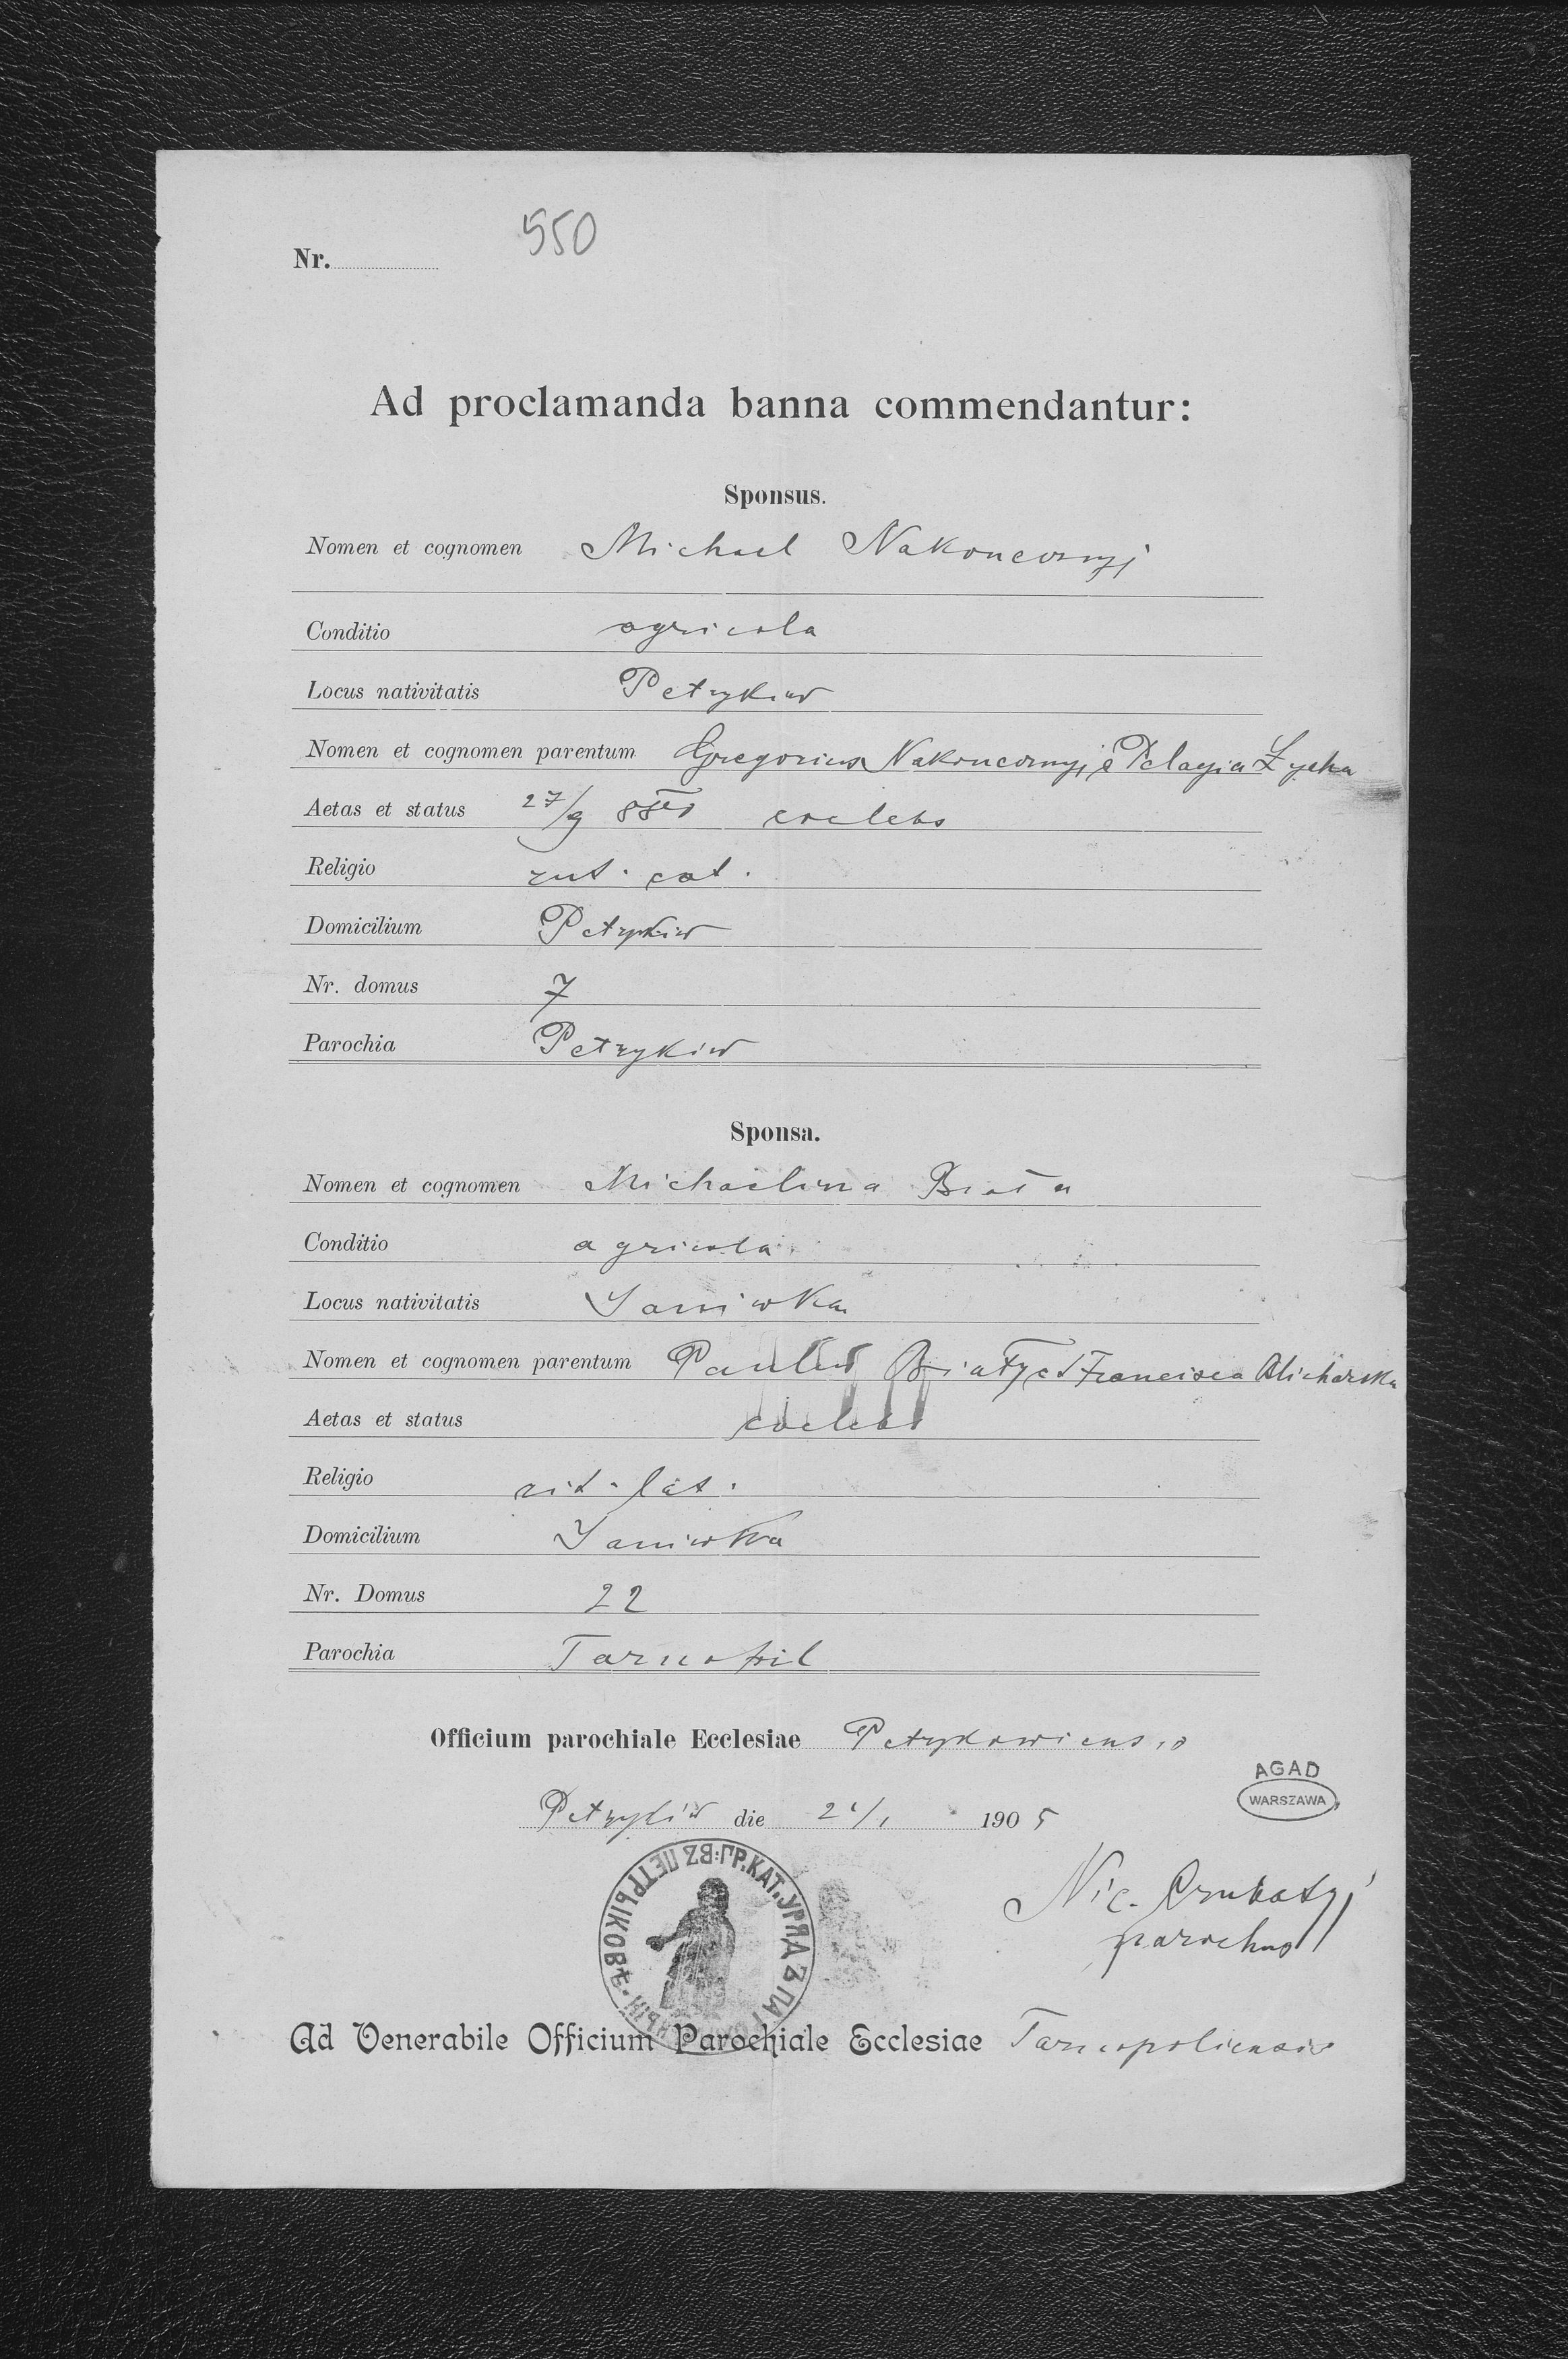 550
Nr.
Ad proclamanda banna commendantur:
Sponsus.
Nomen et cognomen Michael Nakonecznyj
Conditio agricola
Locus nativitatis Petrykiw
Nomen et cognomen parentum Gregorius Nakonecznyj & Pelagia
Aetas et status 27/9 coelebs
Religio rut. cat.
Domicilium Petrykiw
Nr. domus 7
Parochia Petrykiw
Sponsa.
Nomen et cognomen Michaelina Biała
Conditio agricola
Locus nativitatis Janiwka
Nomen et cognomen parentum Paulus Biały et Francisca
Aetas et status coelebs
Religio rit. lat.
Domicilium Janiwka
Nr. Domus 22
Parochia Tarnopil
Officium parochiale Ecclesiae Petrykowiensis
Petrykiw die 1905
AGAD
WARSZAWA
ГР.КАТ.УРЯДЪ ПА НЫЙ ВЪ ПЕТРЫКОВѢ
Nic.
parochus
Ad Venerabile Officium Parochiale Ecclesiae Tarnopoliensis